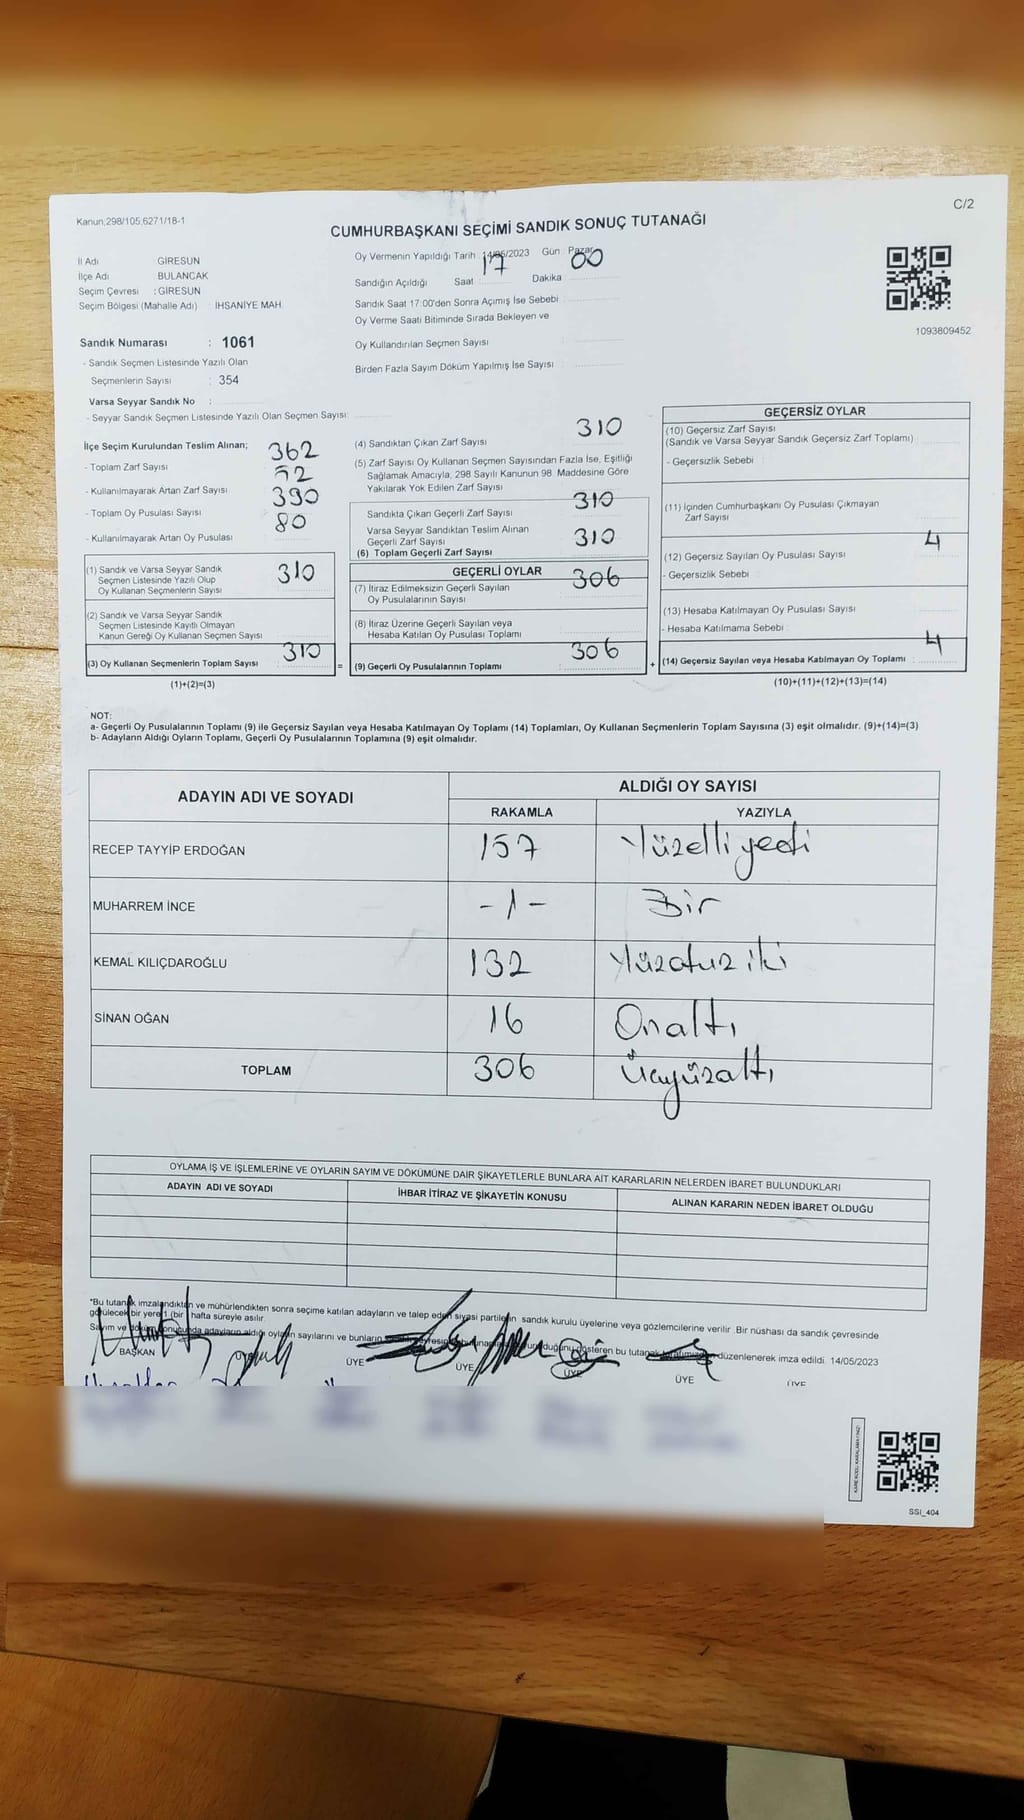 Kanun;298/105;6271/18-1
C/2
CUMHURBAŞKANI SEÇİMİ SANDIK SONUÇ TUTANAĞI
İl Adı GİRESUN
İlçe Adı BULANCAK
Seçim Çevresi : GİRESUN
Seçim Bölgesi (Mahalle Adı) : İHSANİYE MAH.
Sandık Numarası : 1061
- Sandık Seçmen Listesinde Yazılı Olan
Seçmenlerin Sayısı : 354
Varsa Seyyar Sandık No :
- Seyyar Sandık Seçmen Listesinde Yazılı Olan Seçmen Sayısı:
Oy Vermenin Yapıldığı Tarih 14/05/2023 Gün Pazar
Sandığın Açıldığı Saat 17 Dakika 00
Sandık Saat 17:00'den Sonra Açımış İse Sebebi
Oy Verme Saati Bitiminde Sırada Bekleyen ve
Oy Kullandırılan Seçmen Sayısı
Birden Fazla Sayım Döküm Yapılmış İse Sayısı
1093809452
İlçe Seçim Kurulundan Teslim Alınan;
- Toplam Zarf Sayısı 362
- Kullanılmayarak Artan Zarf Sayısı 52
- Toplam Oy Pusulası Sayısı 390
- Kullanılmayarak Artan Oy Pusulası 80
(1) Sandık ve Varsa Seyyar Sandık
Seçmen Listesinde Yazılı Olup
Oy Kullanan Seçmenlerin Sayısı 310
(2) Sandık ve Varsa Seyyar Sandık
Seçmen Listesinde Kayıtlı Olmayan
Kanun Gereği Oy Kullanan Seçmen Sayısı
(3) Oy Kullanan Seçmenlerin Toplam Sayısı 310
(1)+(2)=(3)
(4) Sandıktan Çıkan Zarf Sayısı 310
(5) Zarf Sayısı Oy Kullanan Seçmen Sayısından Fazla İse, Eşitliği
Sağlamak Amacıyla, 298 Sayılı Kanunun 98. Maddesine Göre
Yakılarak Yok Edilen Zarf Sayısı
Sandıkta Çıkan Geçerli Zarf Sayısı 310
Varsa Seyyar Sandıktan Teslim Alınan
Geçerli Zarf Sayısı
(6) Toplam Geçerli Zarf Sayısı 310
GEÇERLİ OYLAR
(7) İtiraz Edilmeksizin Geçerli Sayılan
Oy Pusulalarının Sayısı 306
(8) İtiraz Üzerine Geçerli Sayılan veya
Hesaba Katılan Oy Pusulası Toplamı
= (9) Geçerli Oy Pusulalarının Toplamı 306
GEÇERSİZ OYLAR
(10) Geçersiz Zarf Sayısı
(Sandık ve Varsa Seyyar Sandık Geçersiz Zarf Toplamı)
- Geçersizlik Sebebi
(11) İçinden Cumhurbaşkanı Oy Pusulası Çıkmayan
Zarf Sayısı
(12) Geçersiz Sayılan Oy Pusulası Sayısı 4
- Geçersizlik Sebebi
(13) Hesaba Katılmayan Oy Pusulası Sayısı
- Hesaba Katılmama Sebebi
+ (14) Geçersiz Sayılan veya Hesaba Katılmayan Oy Toplamı : 4
(10)+(11)+(12)+(13)=(14)
NOT:
a- Geçerli Oy Pusulalarının Toplamı (9) ile Geçersiz Sayılan veya Hesaba Katılmayan Oy Toplamı (14) Toplamları, Oy Kullanan Seçmenlerin Toplam Sayısına (3) eşit olmalıdır. (9)+(14)=(3)
b- Adayların Aldığı Oyların Toplamı, Geçerli Oy Pusulalarının Toplamına (9) eşit olmalıdır.
ADAYIN ADI VE SOYADI
ALDIĞI OY SAYISI
RAKAMLA YAZIYLA
RECEP TAYYİP ERDOĞAN 157 Yüzelliyedi
MUHARREM İNCE -1- Bir
KEMAL KILIÇDAROĞLU 132 Yüzotuz iki
SİNAN OĞAN 16 Onaltı
TOPLAM 306 Üçyüzaltı
OYLAMA İŞ VE İŞLEMLERİNE VE OYLARIN SAYIM VE DÖKÜMÜNE DAİR ŞİKAYETLERLE BUNLARA AİT KARARLARIN NELERDEN İBARET BULUNDUKLARI
ADAYIN ADI VE SOYADI İHBAR İTİRAZ VE ŞİKAYETİN KONUSU ALINAN KARARIN NEDEN İBARET OLDUĞU
*Bu tutanak imzalandıktan ve mühürlendikten sonra seçime katılan adayların ve talep eden siyasi partilerin sandık kurulu üyelerine veya gözlemcilerine verilir. Bir nüshası da sandık çevresinde
görülecek bir yere 1 (bir) hafta süreyle asılır.
Sayım ve döküm sonucunda adayların aldığı oyların sayılarını ve bunların gösteren bu tutanak düzenlenerek imza edildi. 14/05/2023
BAŞKAN ÜYE ÜYE ÜYE ÜYE ÜYE
SSİ_404